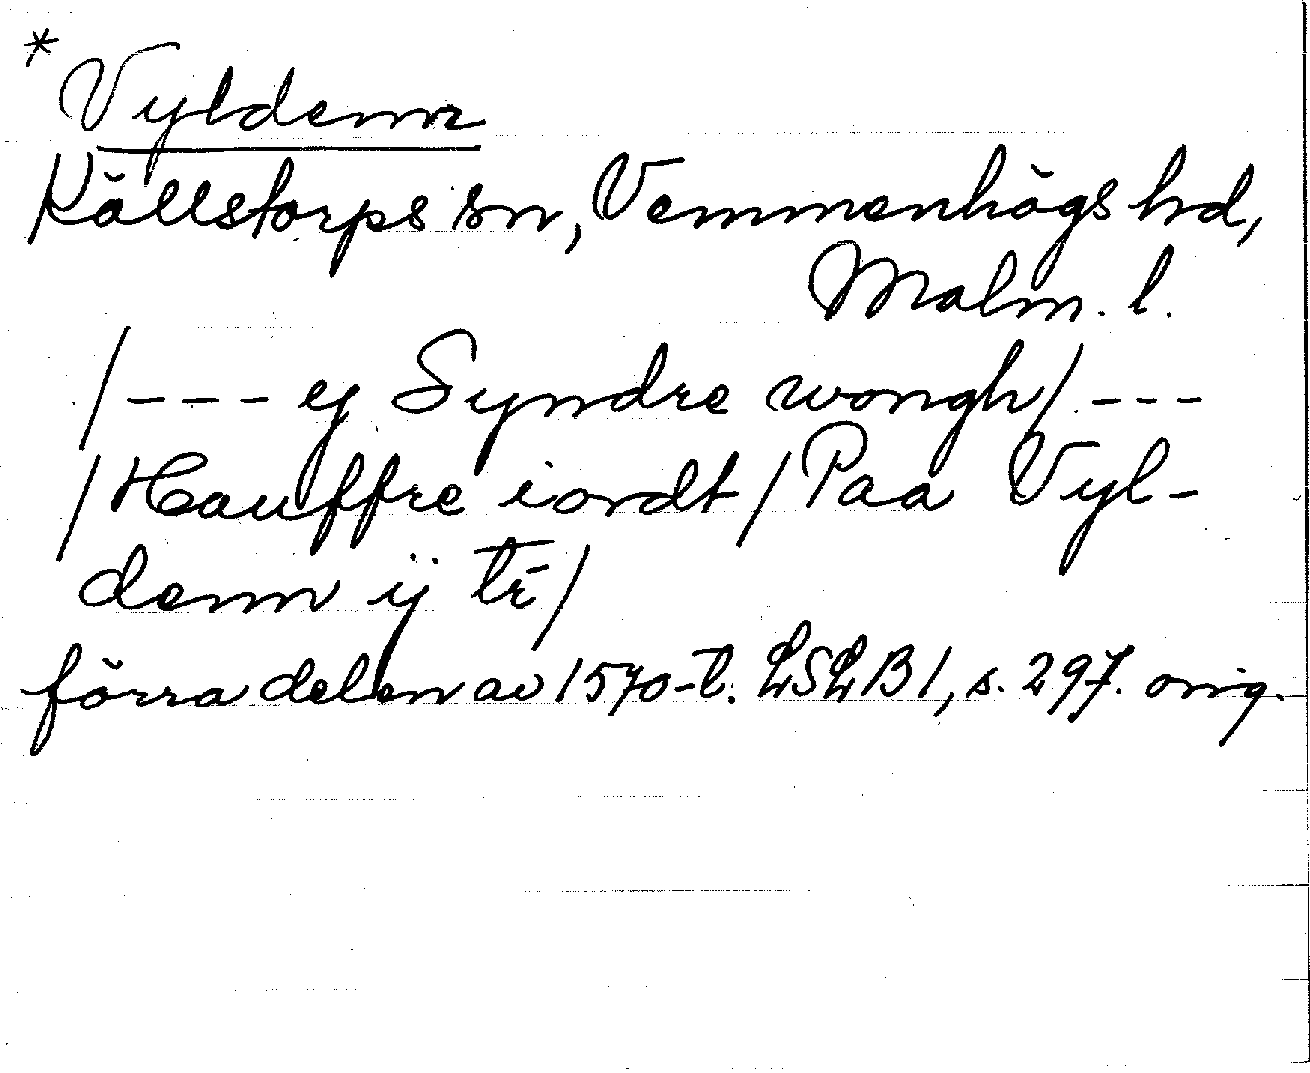 * Vyldenn
Källstorps sn, Vemmenhögs hd,
Malm. l.
/--- ey Syndre wongh/ ---
/Hauffre iordt/ Paa Vyl-
denn ÿ
förra delen av 1570-t. LSLB1, s. 297. orig.